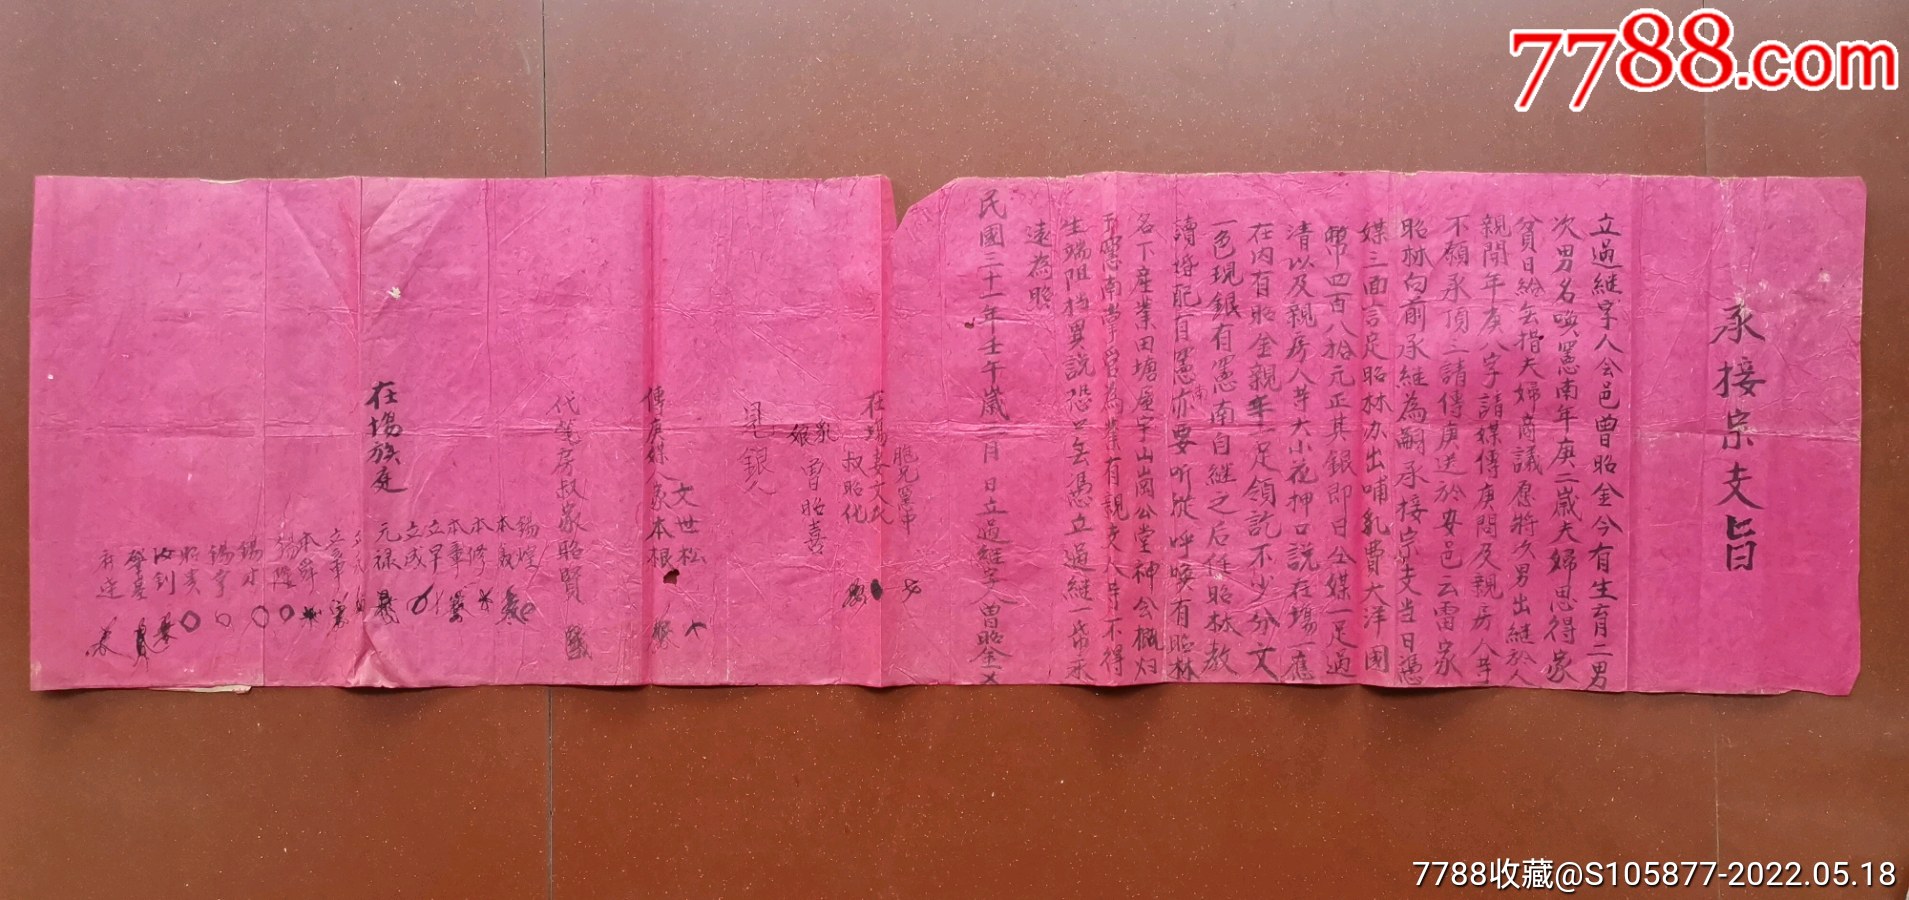 7788.com
承接宗支旨
立過继字人会邑曾昭金今有生育二男
次男名喚憲南年庚二歲夫婦思得家
貧日給無指夫婦商議愿將次男出継於人
親問年庚八字請媒傳庚問及親房人等
不願承頂三請傳庚送於安邑云雷家
昭林向前承継為嗣承接宗支当日憑
媒三面言定昭林办出哺乳費大洋國
幣四百八拾元正其銀即日仝媒一足過
清以及親房人等大小花押口說在場一應
在内有昭金親手一足領訖不少分文
一色現銀有憲南自継之后任昭林教
讀婚配有憲南亦要听從呼喚有昭林
名下産業田塘屋宇山崗公堂神会概归
憲南掌管為業有親支人等不得
生端阻挡異說恐口無憑立過継一帋承
遠為照
民國三十一年壬午歲二月 日立過継字人曾昭金
胞兄憲申
在場妻文氏
叔昭化
曾昭喜
見銀人
文世松
傳庚媒人家本根
代筆房叔家昭賢
在場族庭
錫煌
本義
本修
本事
立早
立成
元禄
立事
本舜
錫隆
錫水
錫亨
昭亥
汝釗
7788收藏@S105877-2022.05.18